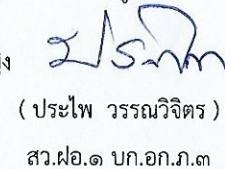 ( ประไพ วรรณวิจิตร )
สว.ฝอ.๑ บก.อก.ภ.๓